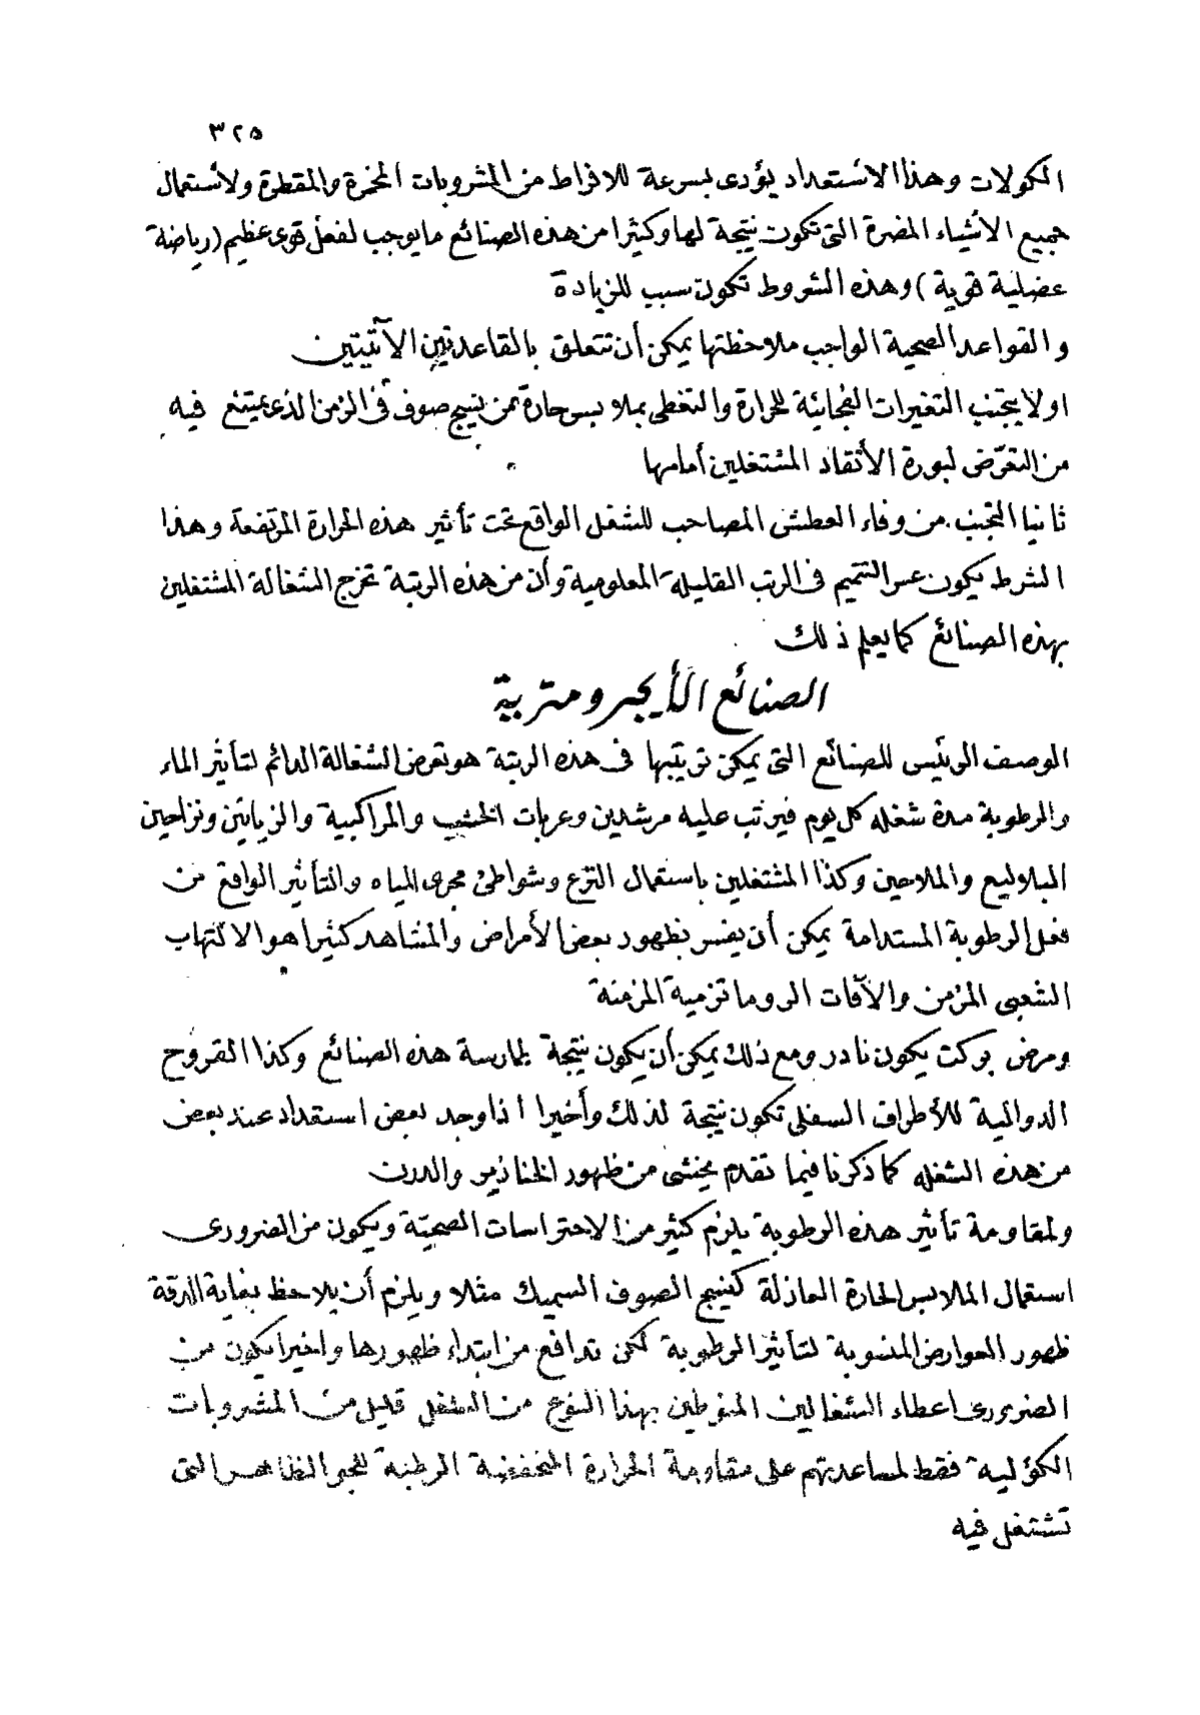 ٣٢٥
الكولات وهذا الاستعداد يؤدى بسرعة للافراط من المشروبات المخمرة والمقطرة ولاستعمال
جميع الأشياء المضرة التى تكون نتيجة لها وكثيرا من هذه الصنائع ما يوجب لفعل قوى عظيم (رياضة
عضلية قوية) وهذه الشروط تكون سبب للزيادة
والقواعد الصحية الواجب ملاحظتها يمكن أن تتعلق بالقاعدتين الآتيتين
اولا يجتنب التغيرات الفجائية للحرارة والتغطى بملابس حارة من نسيج صوف فى الزمن الذى يمتنع فيه
من التعرّض لبورة الأتقاد المشتغلين أمامها
ثانيا التجنب من وفاء العطش المصاحب للشغل الواقع تحت تأثير هذه الحرارة المرتفعة وهذا
الشرط يكون عسر التتميم فى الرتب القليلة المعلومية وأن من هذه الرتبة تخرج الشغالة المشتغلين
بهذه الصنائع كما يعلم ذلك
الصنائع الأيجرومترية
الوصف الرئيس للصنائع التى يمكن ترتيبها فى هذه الرتبة هو تعرض الشغالة الدائم لتأثير الماء
والرطوبة مدة شغله كل يوم فيرتب عليه مرشدين وعربات الخشب والمراكبية والزياتين ونزاحين
البلاليع والملاحين وكذا المشتغلين باستعمال الترع وشواطئ مجرى المياه والتأثير الواقع من
فعل الرطوبة المستدامة يمكن أن يفسر بظهور بعض الأمراض والمشاهد كثيرا هو الالتهاب
الشعبى المزمن والآفات الروماتزمية المزمنة
ومرض بوكت يكون نادر ومع ذلك يمكن أن يكون نتيجة لممارسة هذه الصنائع وكذا القروح
الدوالية للأطراف السفلى تكون نتيجة لذلك وأخيرا اذا وجد بعض استعداد عند بعض
من هذه الشغله كما ذكرنا فيما تقدم يخشى من ظهور الخنازير والدرن
ولمقاومة تأثير هذه الرطوبة يلزم كثير من الاحتراسات الصحيّة ويكون من الضرورى
استعمال الملابس الحارة العازلة كنسيج الصوف السميك مثلا ويلزم أن يلاحظ بغاية الدقة
ظهور العوارض المنسوبة لتأثير الرطوبة لكى تدافع من ابتداء ظهورها واخيرا يكون من
الضرورى اعطاء الشغالين المنوطين بهذا النوع من الشغل قليل من المشروبات
الكؤلية فقط لمساعدتهم على مقاومة الحرارة المنخفضة الرطبة للجو الظاهر التى
تشتغل فيه